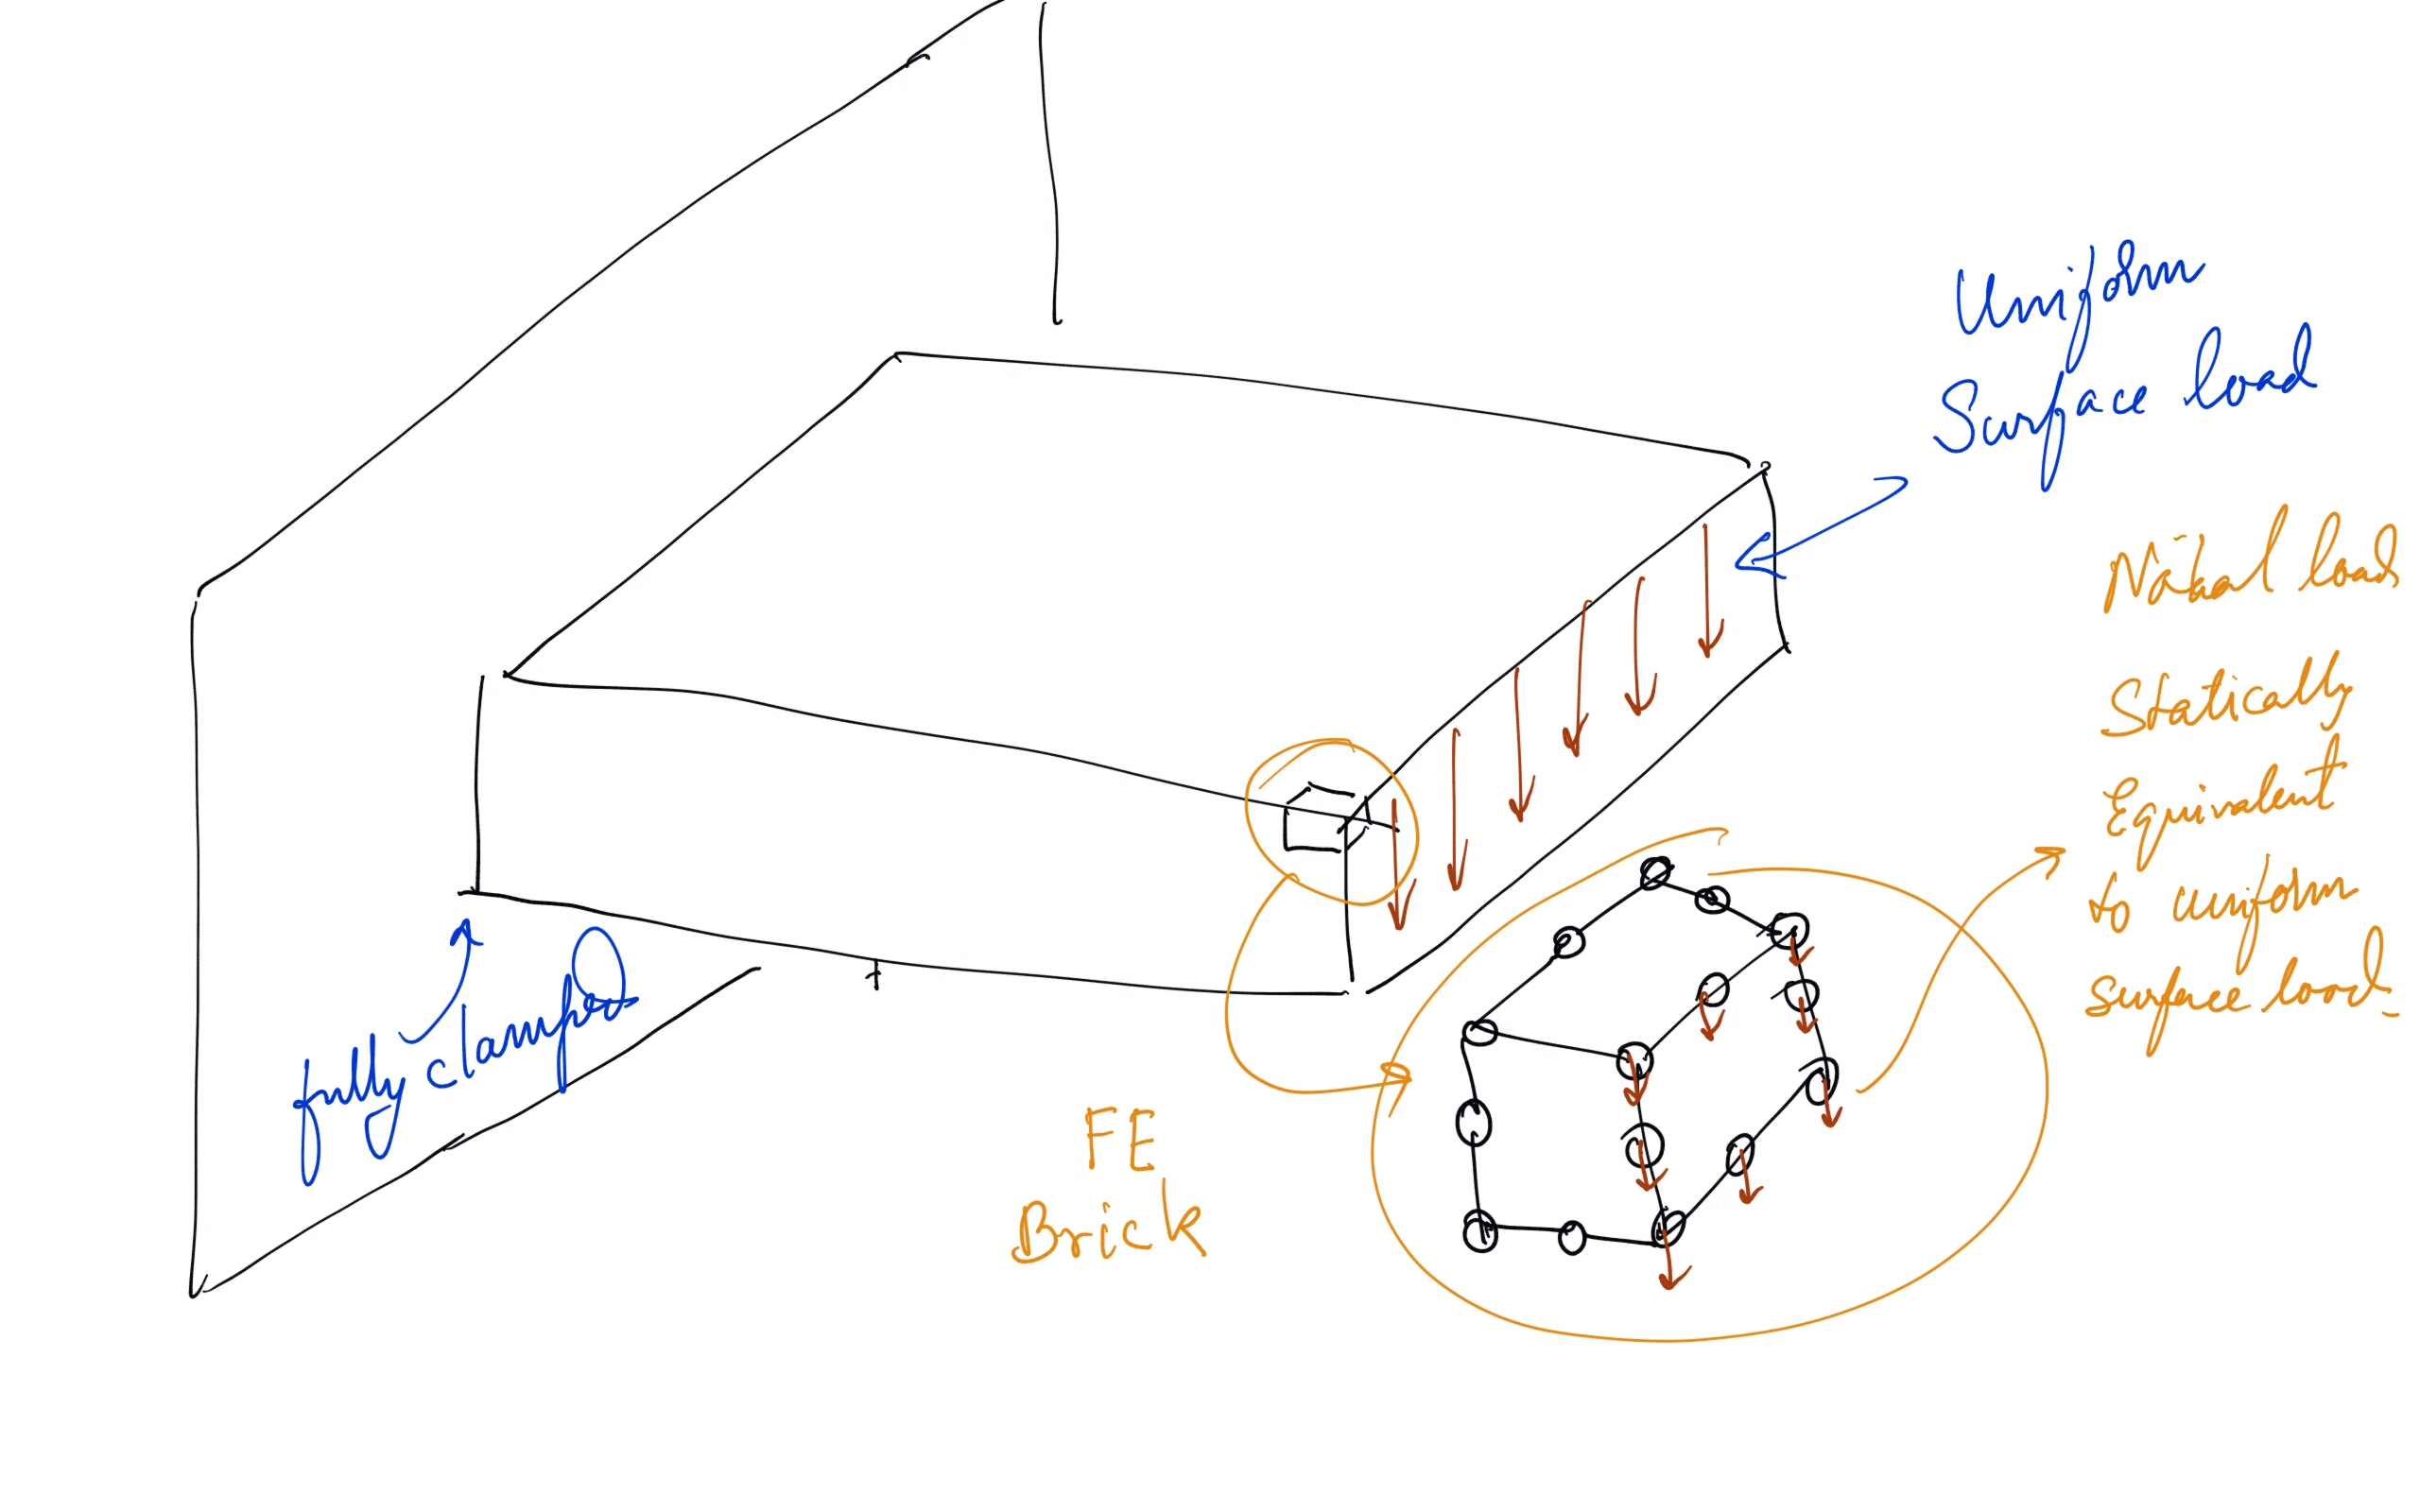 Uniform
Surface load
Nodal load
Statically
Equivalent
to uniform
Surface load
fully clamped
FE
Brick